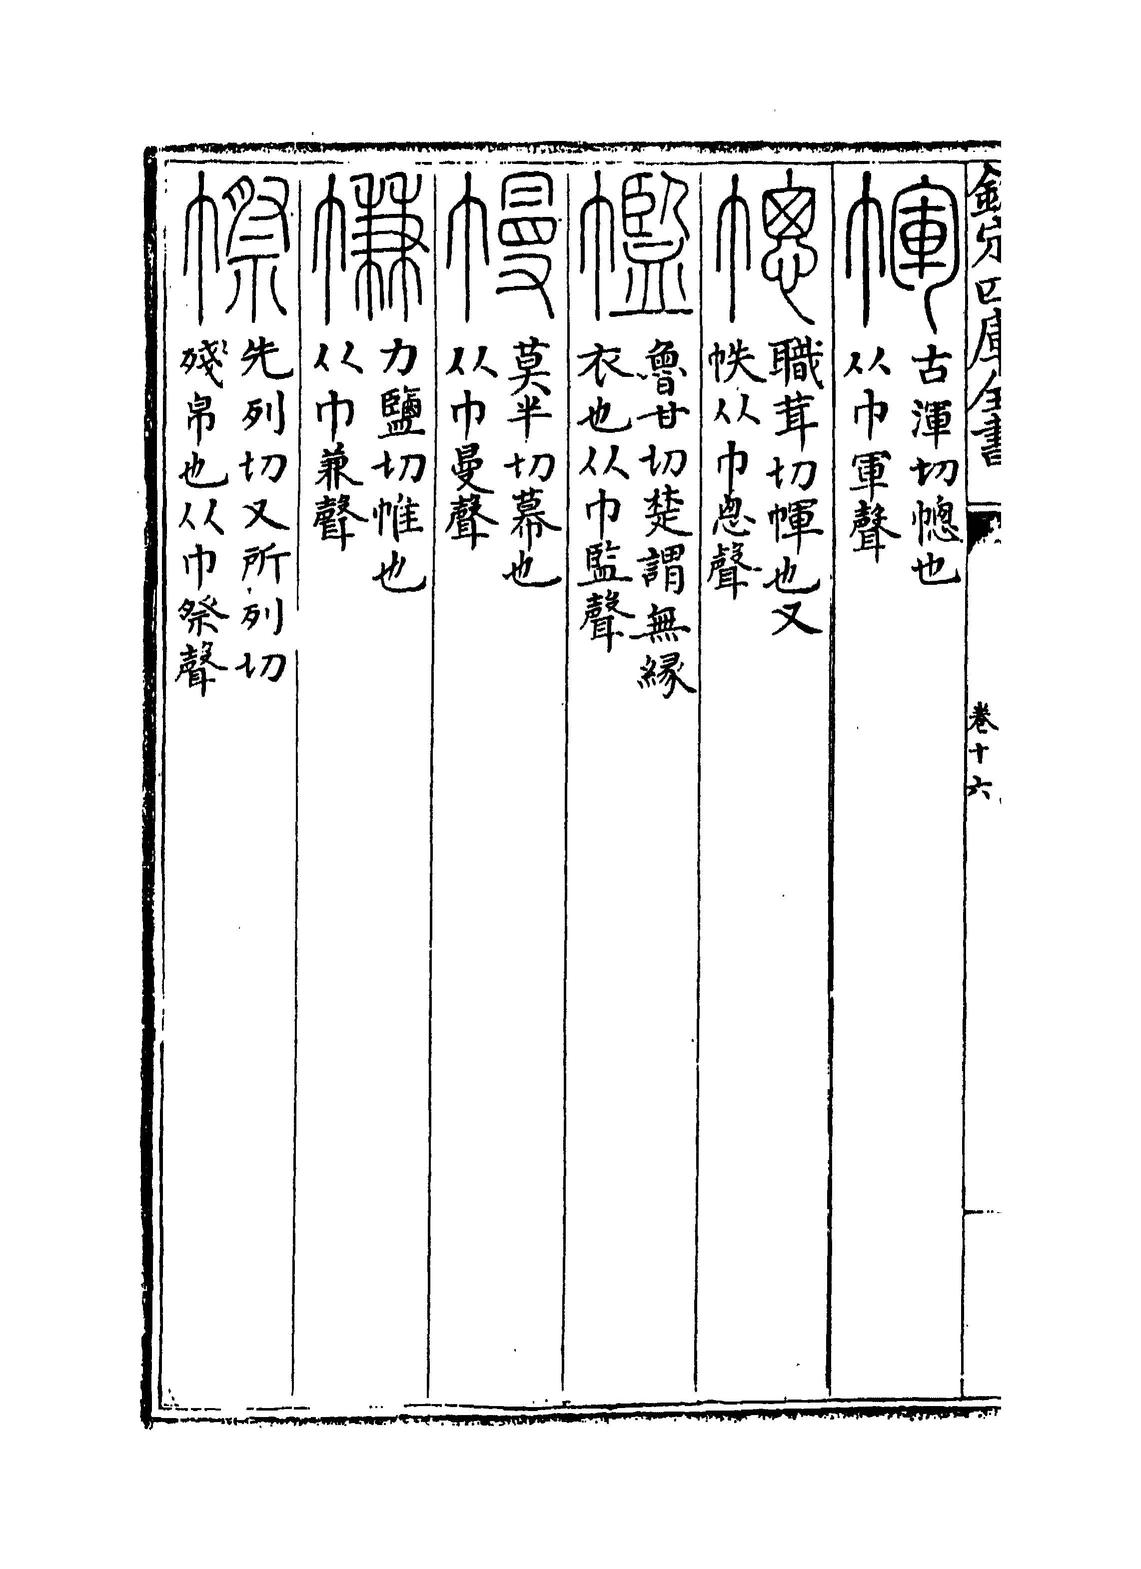 欽定四庫全書
卷十六
幝 古渾切幒也
从巾軍聲
幒 職茸切幝也又
帙从巾悤聲
㡵 魯甘切楚謂無縁
衣也从巾監聲
幔 莫半切幕也
从巾曼聲
㡘 力鹽切帷也
从巾兼聲
㡜 先列切又所列切
殘帛也从巾祭聲